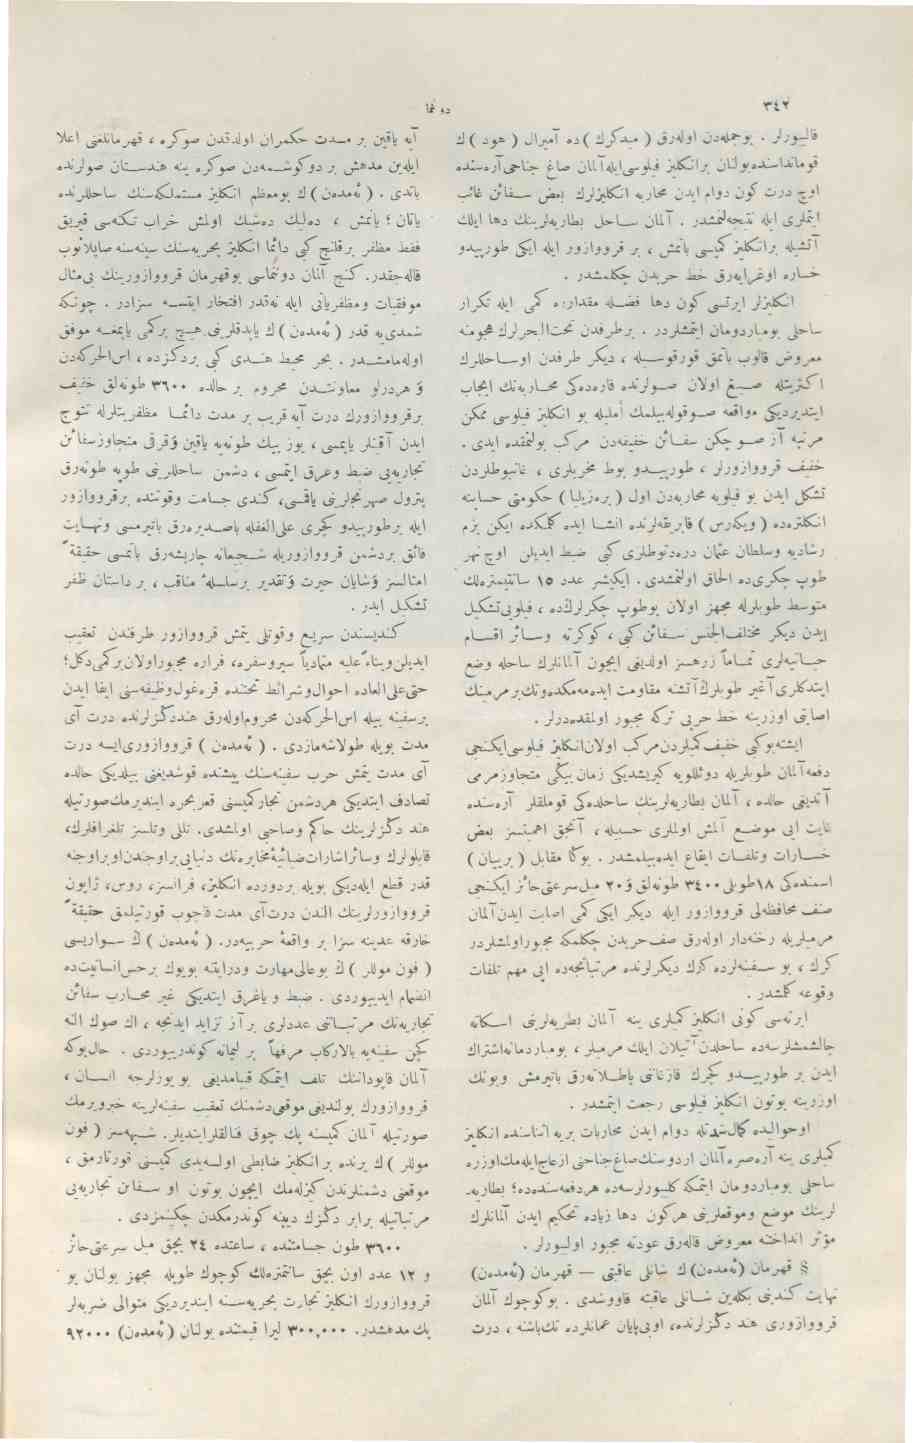 ٣٤٢
دونما
قاليورلر . بوجمله‌دن اوله‌رق ( ميدكرك ) ده آميرال ( هود ) ك
قومانداسنده‌بولنان برانكليز فيلوسی‌ايله‌آلمان صاغ جناحی‌آره‌سنده
اوچ درت كون دوام ايدن محاربه انكليزلرك بعض سفائن غائب
ايتملری ايله نتيجه‌لنمشدر . آلمان ساحل بطاريه‌لرينك دها ايلك
آتشيله برانكليز كميسی باتمش ، بر قرووازور ايله ايكی طورپيدو
خساره اوغرايه‌رق خط حربدن چكلمشدر .
انكليزلر ايرتسی كون دها فضله مقدارده كمی ايله تكرار
ساحلی بومباردومان ايتمشلردر . برطرفدن تحت‌البحرلرك هجومنه
معروض قالوب باتمق قورقوسيله ، ديكر طرفدن اوساحللرك
اكثريتله صيغ اولان صولرنده قاره‌ده‌كی محاربه‌نك ايجاب
ايتديرديكی مواقعه صوقوله‌بيلمك امليله بو انكليز فيلوسی ممكن
مرتبه آز صو چكن سفائن خفيفه‌دن مركب بولنمقده ايدی .
خفيف قرووازورلر ، طورپيدو بوط مخربلری ، غانبوطلردن
تشكل ايدن بو فيلويه محاربه‌دن اول ( بره‌زيليا ) حكومتی حسابنه
انكلتره‌ده ( ويكه‌رس ) فابريقه‌لرنده انشا ايده كلمكده ايكن بزم
رشاديه وسلطان عثمان دره‌دنوطلری كبی ضبط ايديلن اوچ نهر
طوپ چكری‌ده الحاق اولنمشدی . ايكيشر عدد ١٥ سانتيمتره‌لك
متوسط طوپلرله مجهز اولان بوطوپ چكرلركده ، فيلويی‌تشكيل
ايدن ديكر مختلف‌الجنس سفائن كبی ، كوكرته وسائر اقسام
حياتيه‌لری تماماً زرهسز اولديغی ايچون آلمانلرك ساحله وضع
ايتدكلری آغير طوپلرك‌آتشنه مقاومت ايده‌مه‌مكده‌وتك‌برمرمينك
اصابتی اوزرينه خط حربی تركه مجبور اولمقده‌درلر .
ايشته‌بوكبی خفيف‌كميلردن‌مركب اولان‌انكليز فيلوسی‌ايكنجی
دفعه‌آلمان طوپلريله دوئللويه كيريشديكی زمان بيكی متجاوزمرمی
آتديغی حالده ، آلمان بطاريه‌لرينك ساحلده‌كی قوملقلر آره‌سنده
غايت ايی موضع آلمش اولملری حسبيله ، آنجق اهميتسز بعض
خسارات وتلفات ايقاع ايده‌بيلمشدر . بوكا مقابل ( بريبان )
اسمنده‌كی ١٨طوپلی ٣٤٠٠ طونه‌لق و ٢٠ ميل‌سرعتی‌حائز ايكنجی
صنف محافظه‌لی قرووازور ايله ديكر ايكی كمی اصابت ايدن‌آلمان
مرميلريله رخنه‌دار اوله‌رق صف حربدن چكلمكه مجبوراولمشلردر
كرك ، بو سفينه‌لرده كرك ديكرلرنده مرتباتجه‌ده ايی مهم تلفات
وقوعه كلمشدر .
ايرته‌سی كونی انكليز كميلری ينه آلمان بطريه‌لرينی اسكاته
چالشمشلرسه‌ده ساحلدن آتيلان ايلك مرميلر ، بومباردمانه‌اشتراك
ايدن بر طورپيدو كچرك قازغاننی پاطلاته‌رق باتيرمش وبونك
اوزرينه بوتون انكليز فيلوسی رجعت ايتمشدر .
اوحوالده كمال‌شدتله دوام ايدن محاربات بريه اثناسنده انكليز
كميلری ينه آره‌صره‌آلمان اردوسنك‌صاغ‌جناحنی ازعاج‌ايله‌مك‌اوزره
ساحلی بومباردومان ايتمكه كليورلرسه‌ده هردفعه‌سنده‌ده؛ بطاريه‌ـ
لرينك موضع وموقعلرينی هركون دها زياده تحكيم ايدن آلمانلرك
مؤثر انداختنه معروض قاله‌رق عودته مجبور اوليورلر .
§ قهرمان (ئه‌مدن) ك شانلی عاقبتی — قهرمان (ئه‌مده‌ن)
نهايت كندينی بكله‌ين شانلی عاقبته قاووشدی . بوكوچوك آلمان
قرووازوری هند دكزلرنده، اوبی‌پايان عمانلرده تك‌باشنه ، درت
آيه ياقين بر مدت حكمران اولدقدن صوكره ، قهرمانلغنی اعلا
ايله‌ين مدهش بر دوكوشمه‌دن صوكره ينه هندستان صولرنده
باتدی . ( ئه‌مده‌ن ) ك بومعظم انكليز مستملكه‌سنك ساحللرنده
ياتان ؛ يانمش ، ده‌ليك ده‌شيك اولمش خراب تكنه‌سی قيريق
فقط مظفر برقلنج كبی دائما انكليز بحريه‌سنك سينه‌سنه صاپلانوب
قاله‌جقدر. كنج آلمان دونماسی بوقهرمان قرووازورينك بی‌مثال
موفقيات ومظفرياتی ايله نه‌قدر افتخار ايتسه سزادر . چونكه
شمدی‌يه قدر ( ئه‌مده‌ن ) ك ياپدقلرينی هيچ بركمی ياپمغه موفق
اوله‌مامشدر . بحر محيط هندی كبی بردكزده ، اس‌الحركه‌دن
و هردرلو معاونتدن محروم بر حالده ٣٦٠٠ طونه‌لق خفيف
برقرووازورك درت آيه قريب بر مدت دائما مظفريتلرله تتوج
ايدن آقينلر ياپمسی ، يوز بيك طونه‌يه ياقين وقرقی متجاوزسفائن
تجاريه‌يی ضبط وغرق ايتمسی ، دشمن ساحللرينی طوپه طوته‌رق
پترول صهرنجلرينی ياقمسی، كندی جسامت وقوتنده برقرووازور
ايله برطورپيدو كچری علی‌الغفله باصديره‌رق باتيرمسی ونهايت
فائق بردشمن قرووازوريله شجيعانه چارپشه‌رق باتمسی حقيقةً
امثالسز وشايان حيرت وتقدير برسلسلهٔ مناقب ، بر داستان ظفر
تشكيل ايدر .
كنديسندن سريع وقوتلی يتمش قرووازور طرفندن تعقيب
ايديلن‌وبناءً‌عليه متماديا سيروسفره، فراره مجبوراولان‌بركمی‌دكل؛
حتی‌علی‌العاده احوال‌وشرائط تحتنده قره‌غول‌وظيفه‌سنی ايفا ايدن
برسفينه بيله اس‌الحركه‌دن محروم‌اوله‌رق هنددكزلرنده درت آی
مدت بويله طولاشه‌مازدی . ( ئه‌مده‌ن ) قرووازوری‌ايسه درت
آی مدت يتمش حرب سفينه‌سنك پيشنده قوشديغنی بيلديكی حالده
تصادف ايتديكی هردشمن تجاركميسنی قعربحره اينديرمك‌صورتيله
هند دكزلرينك حاكم وصاحبی اولمشدی. تللی وتلسز تلغرافلرك،
قابلولرك وسائراشارات‌ضيائيهٔ‌مخابره‌نك دنيايی‌براوجندن‌اوبراوجنه
قدر قطع ايله‌ديكی بويله بردورده انكليز، فرانسز، روس، ژاپون
قرووازورلرينك الندن درت‌آی مدت قاچوب قورتيلمق حقيقةً
خارقه عدينه سزا بر واقعهٔ حربيه‌در. ( ئه‌مده‌ن ) ك سواريسی
( فون موللر ) ك بوعالی‌مهارت ودرايتنه بويوك برحس‌انسانيت‌ده
انضمام ايدييوردی . ضبط وياغرق ايتديكی غير محارب سفائن
تجاريه‌نك مرتباتنی عددلری بر آز تزايد ايدنجه ، اك صوك النه
كچن سفينه‌يه بالاركاب مرفهاً بر ليمانه كوندرييوردی . حال‌بوكه
آلمان قاپوداننك تلف ايتمكه قيامديغی بو يوزلرجه انسان ،
قرووازورك بولنديغی موقعی‌دشمنك تعقيب سفينه‌لرينه خبرويرمك
صورتيله آلمان كميسنه پك چوق فنالقلرايتديلر. شبهه‌سز ( فون
موللر ) ك يرنده بر انكليز ضابطی اولسه‌يدی كميسنی قورتارمق ،
موقعنی دشمنلرندن كيزله‌مك ايچون بوتون او سفائن تجاريه‌يی
مرتباتيله برابر دكزك ديبنه كوندرمكدن چكينمزدی .
٣٦٠٠ طون جسامتنده ، ساعتده ٢٤ بچق ميل سرعتی‌حائز
و ١٢ عدد اون بچق سانتمتره‌لك كوچوك طوپله مجهز بولنان بو
قرووازورك انكليز تجارت بحريه‌سنه اينديرديكی متوالی ضربه‌لر
پك مدهشدر. ٣٠٠,٠٠٠ ليرا قيمتنده بولنان (ئه‌مده‌ن) ٩٢٠٠٠